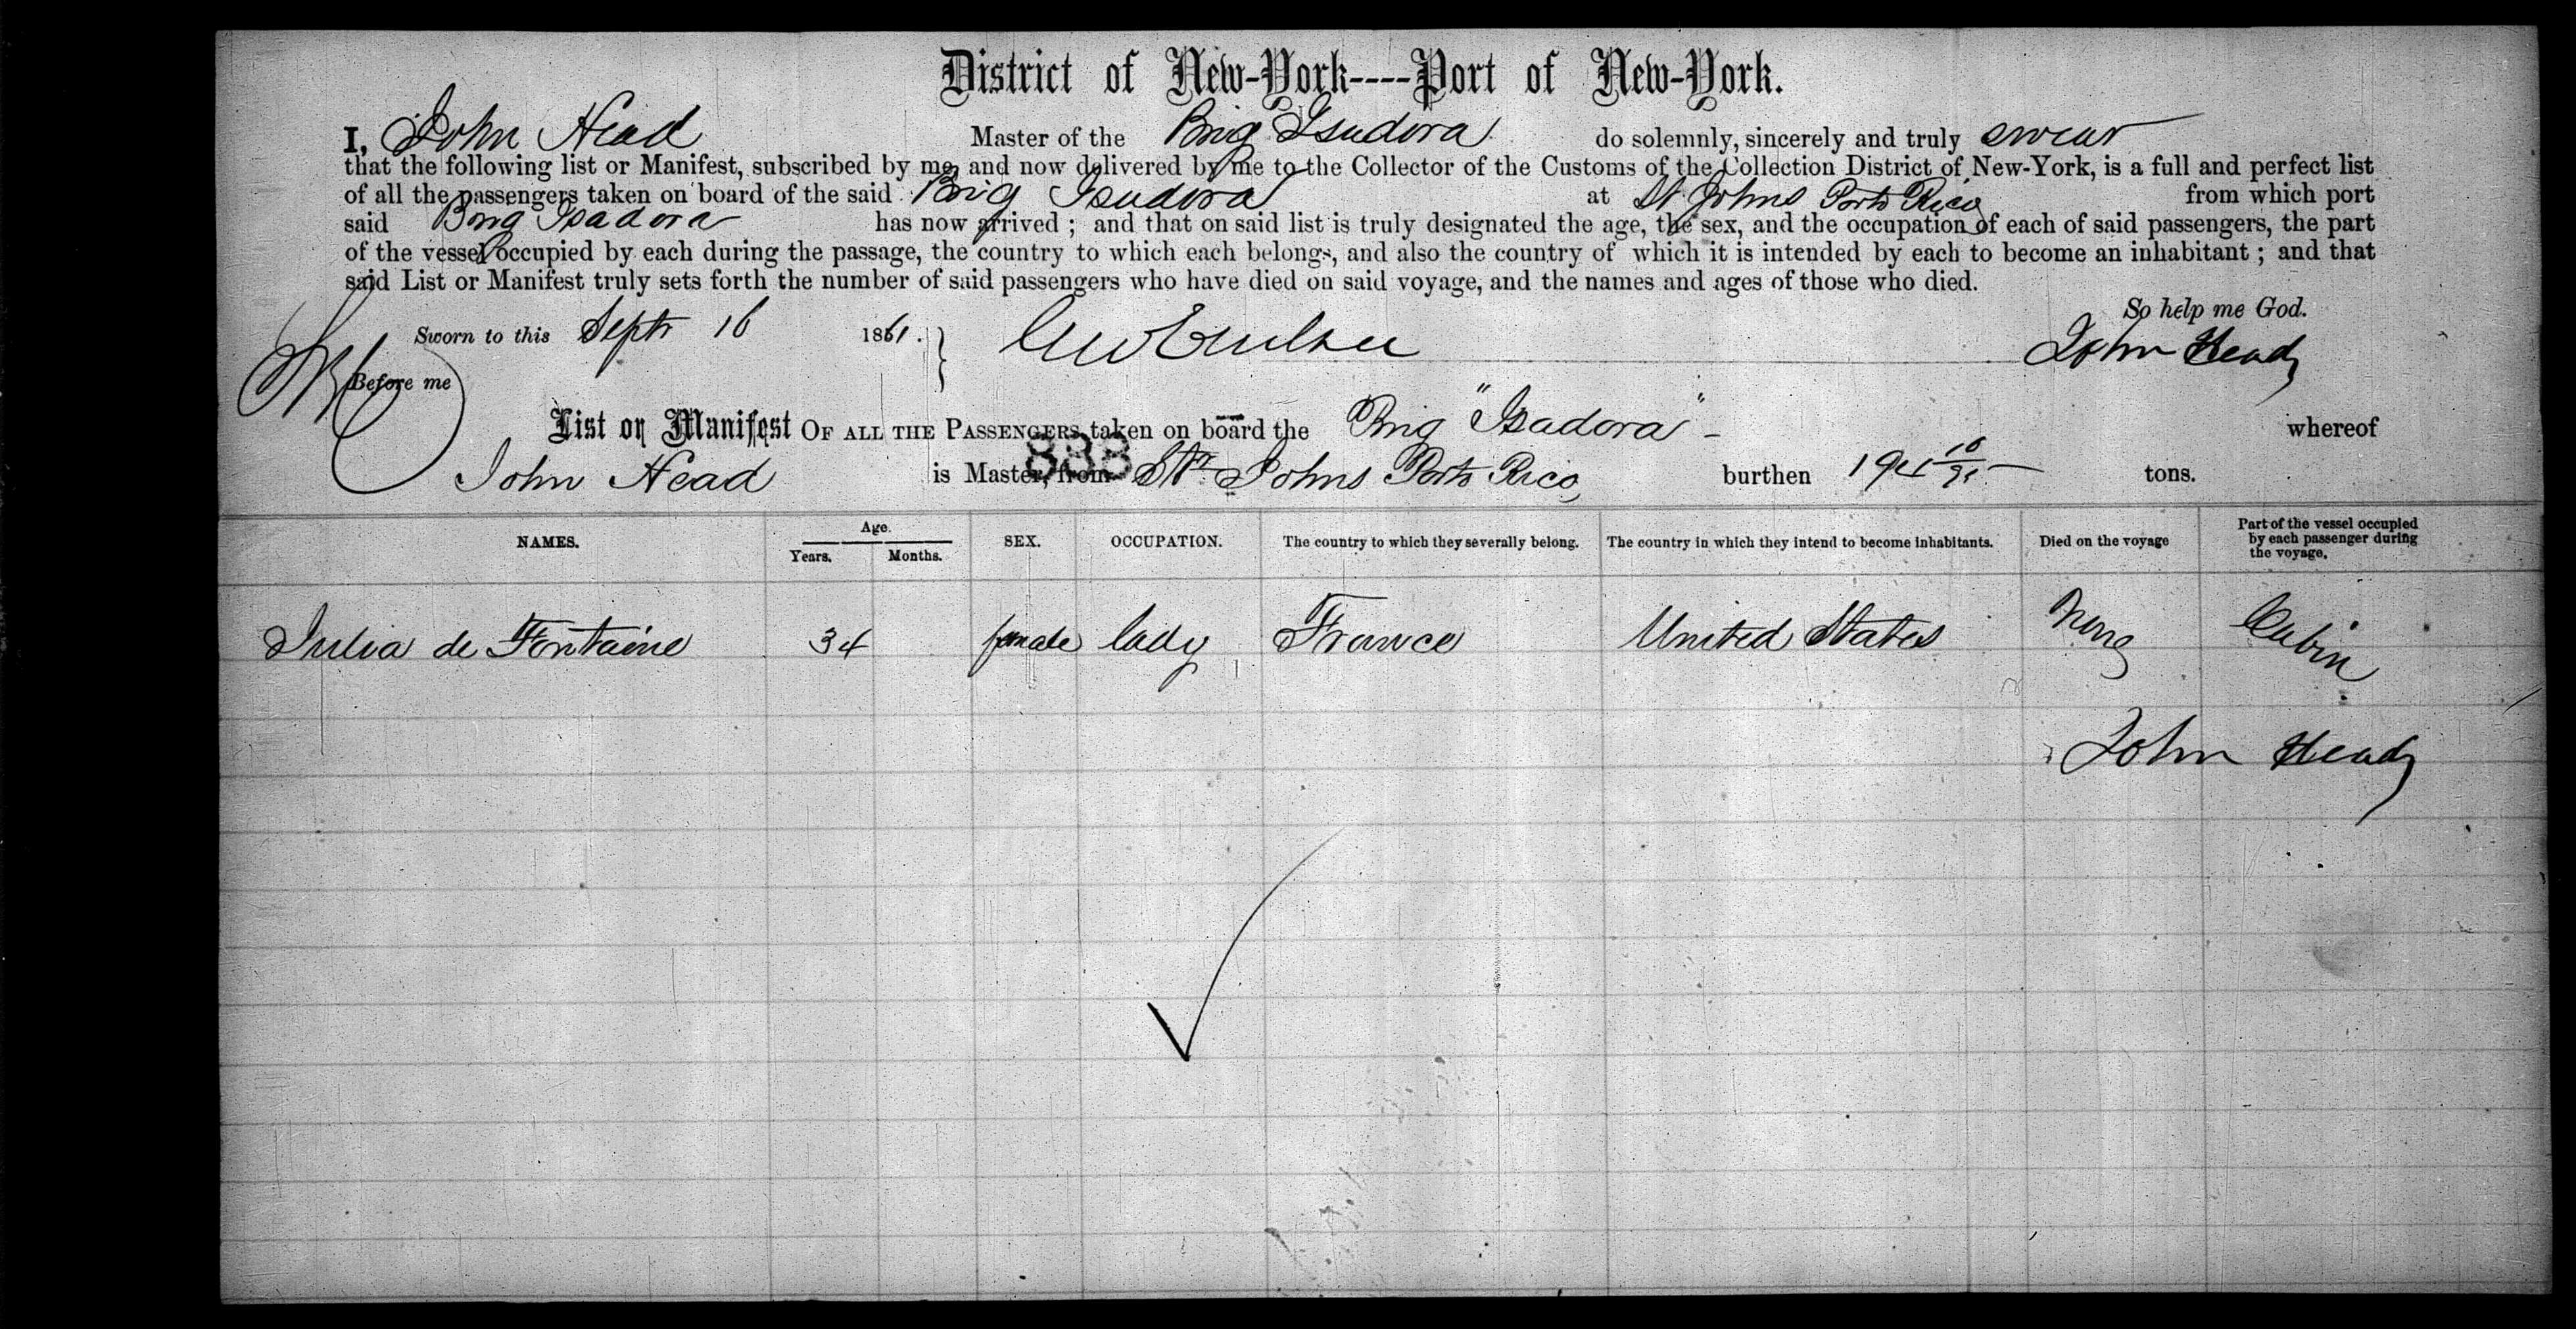 District of New-York----Port of New-York.
I, John Head Master of the Brig Isadora do solemnly, sincerely and truly swear
that the following list or Manifest, subscribed by me, and now delivered by me to the Collector of the Customs of the Collection District of New-York, is a full and perfect list
of all the passengers taken on board of the said Brig Isadora at St Johns Porto Rico from which port
said Brig Isadora has now arrived; and that on said list is truly designated the age, the sex, and the occupation of each of said passengers, the part
of the vessel occupied by each during the passage, the country to which each belongs, and also the country of which it is intended by each to become an inhabitant; and that
said List or Manifest truly sets forth the number of said passengers who have died on said voyage, and the names and ages of those who died.
So help me God.
Sworn to this Septr 16 1861. John Head
Before me
List or Manifest OF ALL THE PASSENGERS taken on board the Brig "Isadora" - whereof
John Head is Master, from St Johns Porto Rico burthen tons.
888
NAMES. Age. Years. Months. SEX. OCCUPATION. The country to which they severally belong. The country in which they intend to become inhabitants. Died on the voyage Part of the vessel occupied by each passenger during the voyage.
Julia de Fontaine 34 female lady France United States None Cabin
John Head